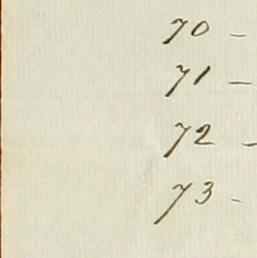 70 -
71 -
72 -
73 -